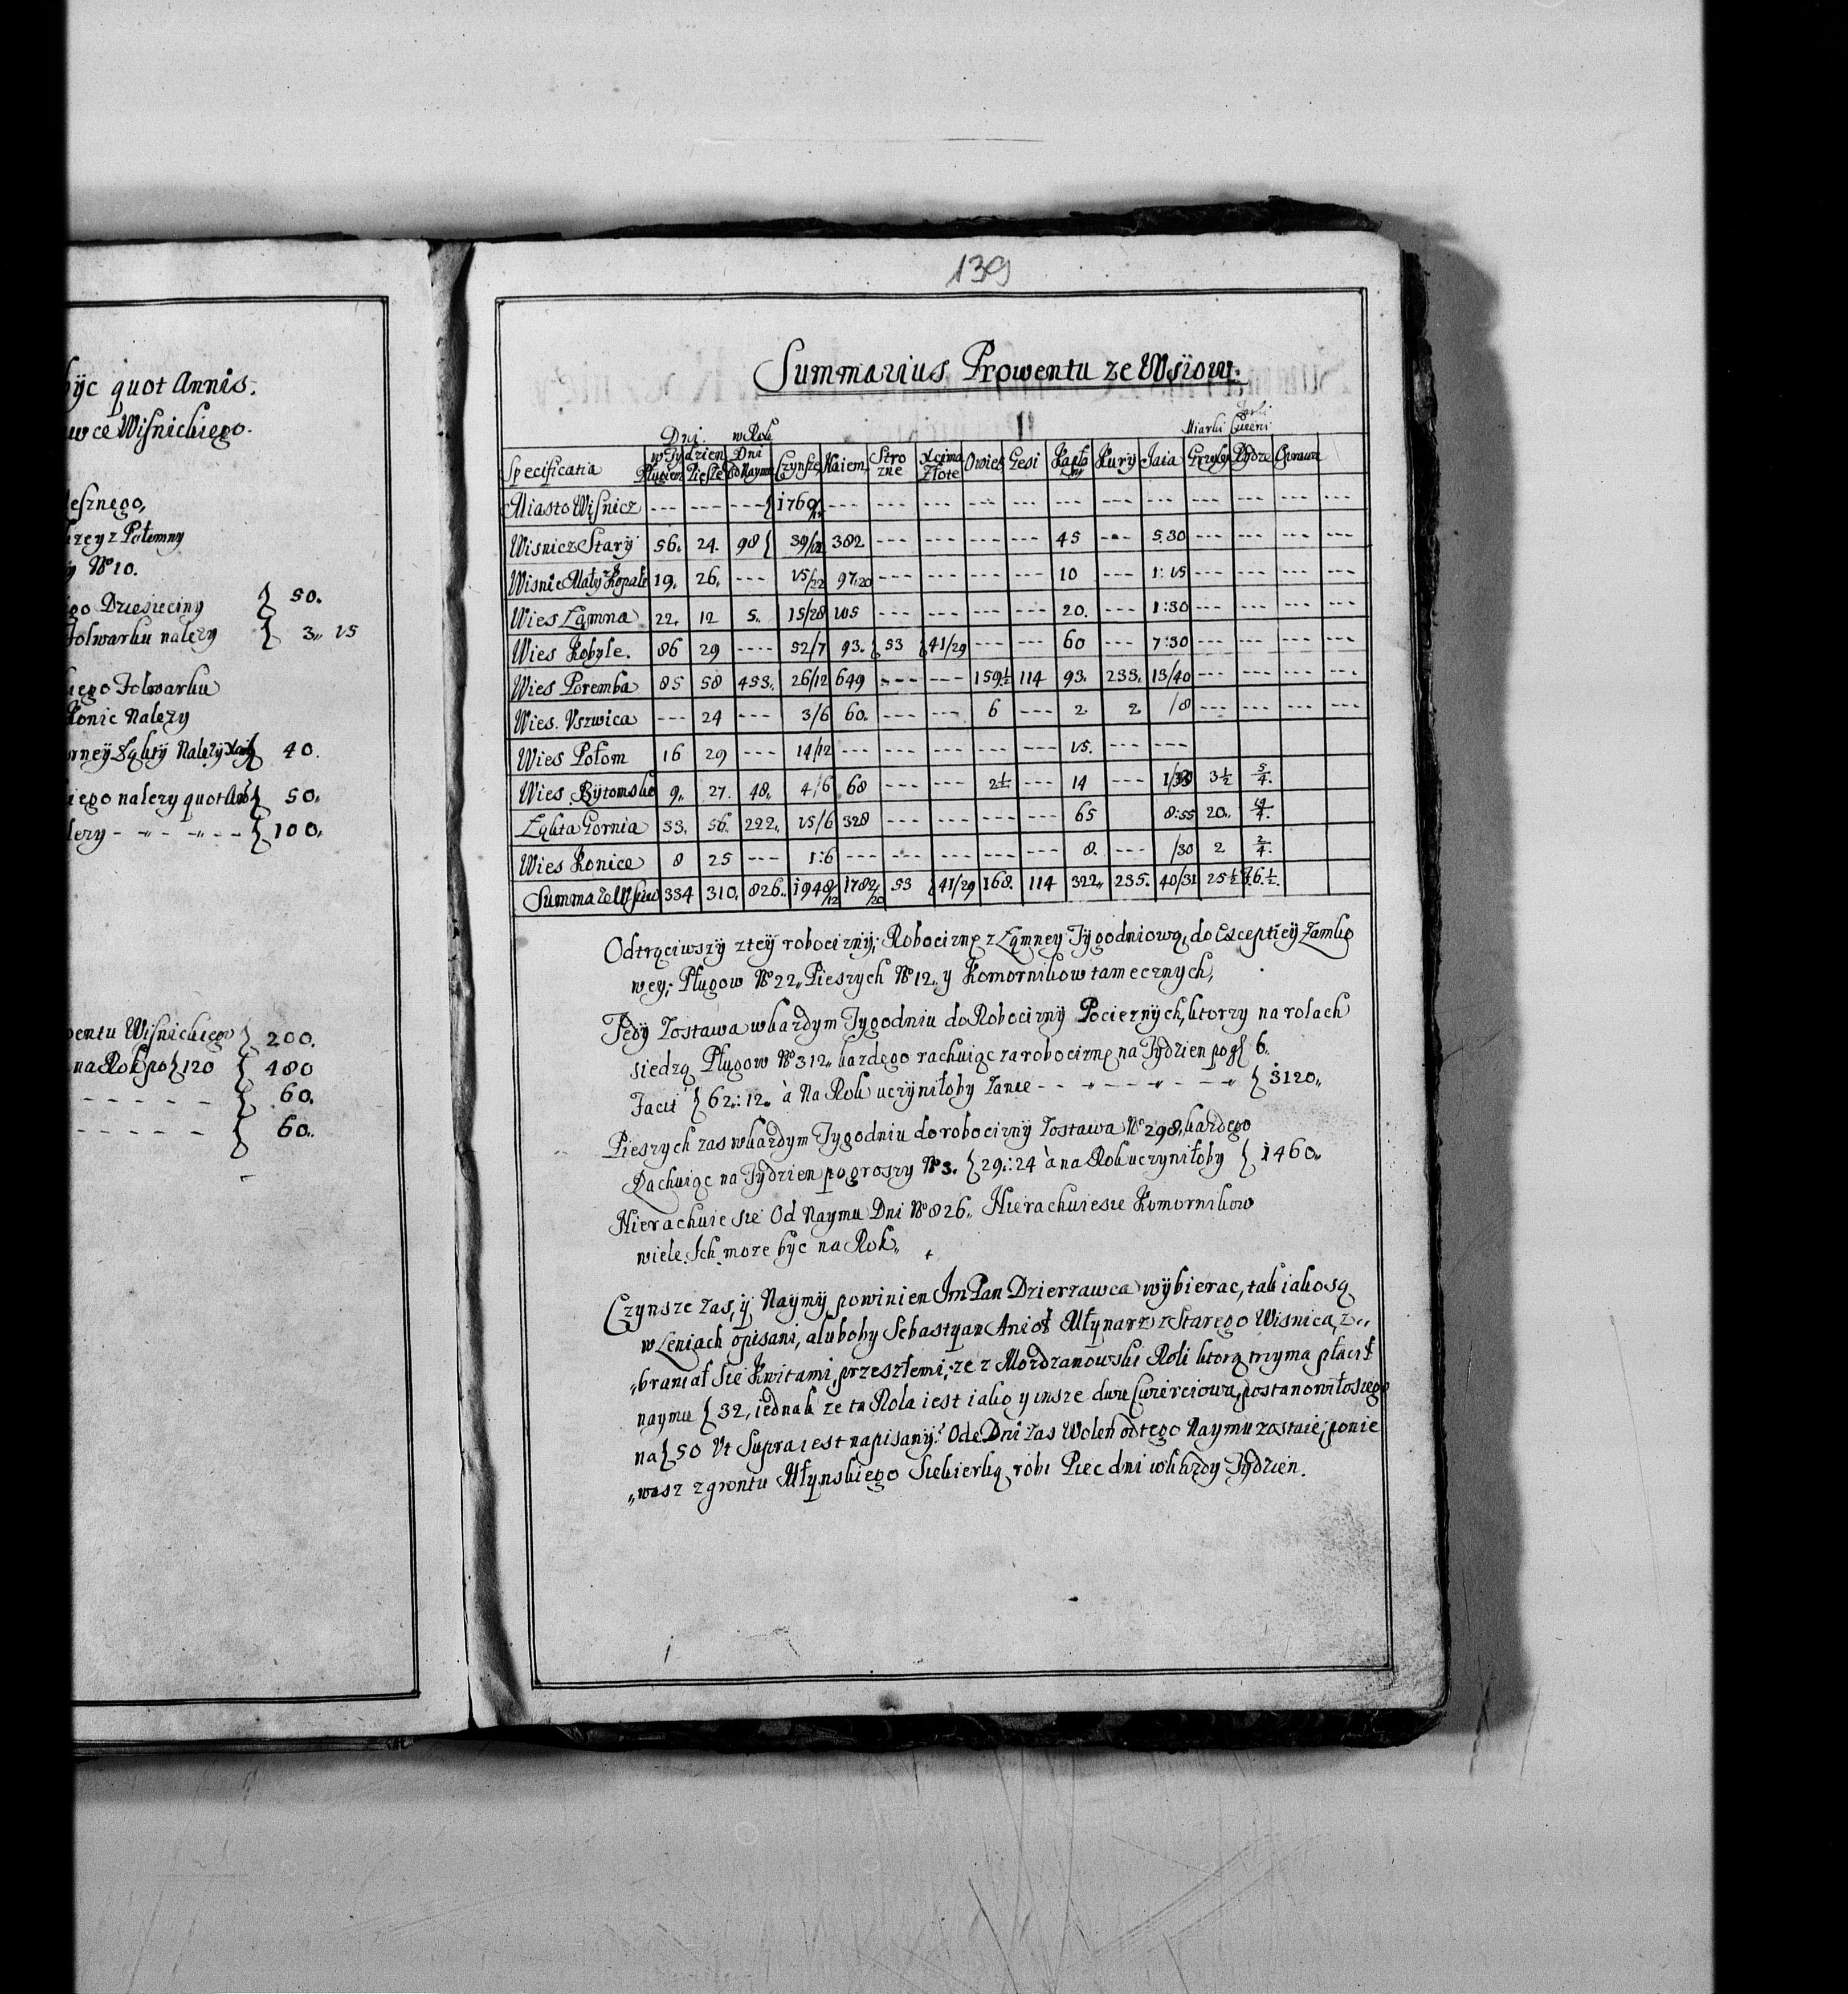 być quot Annis.
Wisnickiego.
Dziesieciny { 50.
Folwarku nalezy { 3,, 15
Folwarku
Konic Nalezy
Nalezy { 40.
nalezy quot { 50.
{ 100.
Wisnickiego } 200.
na Rok po { 120 { 480
- - - - - { 60.
- - - - - { 60.
139
Summarius Prowentu ze Wsiow.
Dni. w Rok
Miarki Cwierci
Specificatia | w Tydzien Plugiem | Piesze | Dni od Naymu | Czynsze | Naiem | Stro zne | Złote | Owies | Gesi | Kapło ny | Kury | Iaia | Grzyby | Rydze
Miasto Wisnicz | --- | --- | --- | 1760 | --- | --- | --- | --- | --- | --- | --- | --- | --- | --- | --- | ---
Wisnicz Stary | 56. | 24. | 98 | 39/12 | 382 | --- | --- | --- | --- | 45 | --- | 5:30 | --- | --- | --- | ---
Wisnic Mały z Kopale | 19. | 26. | --- | 15/22 | 97:20 | --- | --- | --- | --- | 10 | --- | 1:15 | --- | --- | --- | ---
Wies Łąmna | 22. | 12 | 5. | 15/28 | 105 | --- | --- | --- | --- | 20. | --- | 1:30 | --- | --- | --- | ---
Wies Kobyle. | 86 | 29 | ---- | 52/7 | 93. | { 53 | { 41/29 | --- | --- | 60 | --- | 7:30 | --- | --- | --- | ---
Wies Poremba | 85 | 58 | 453. | 26/12 | 649 | --- | --- | 159½ | 114 | 93. | 233. | 13/40 | --- | --- | --- | ---
Wies. Uszwica | --- | 24 | --- | 3/6 | 60. | --- | --- | 6 | --- | 2. | 2. | /8 | --- | --- | --- | ---
Wies Połom | 16 | 29 | --- | 14/12 | --- | --- | --- | --- | --- | 15. | --- | ---
Wies Bytomsko | 9. | 27. | 48. | 4/6 | 68 | --- | --- | 2½ | --- | 14 | --- | 3½ | 5/4.
Łąkta Gornia | 33. | 56. | 222. | 15/6 | 328 | --- | --- | --- | --- | 65 | 8:55 | 20.
Wies Konice | 8 | 25 | --- | 1:6 | --- | --- | --- | --- | --- | 8. | --- | /30 | 2 | 2/4.
Summa ze Wsiow | 334 | 310. | 826. | 1948/12 | 1782/20 | 53 | { 41/29 | 168. | 114 | 322,, | 235. | 40/31 | 25½ | 6.½.
Odtrąciwszy z tey robocizny; Robociznę z Łąmney Tygodniową, do Exceptiey Zamko
wey; Pługow No 22,, Pieszych No 12,, y Komornikow tamecznych,
Tedy Zostawa w kazdym Tygodniu do Robocizny Pocieznych, ktorzy na rolach
siedzą Pługow No 312,, kazdego rachuiąc za robociznę na Tydzien po g { 6.
Facit { 62,,:12,, à Na Rok uczyniłoby Zante - - - - - - - { 3120,,
Pieszych zas w kazdym Tygodniu do robocizny Zostawa No 298,, kazdego
Rachuiąc na Tydzien po groszy No 3. { 29,,:24 à na Rok uczyniłoby { 1460,,
Nierachuie sie Od Naymu Dni No 826,, Nierachuie sie Komornikow
wiele Ich moze być na Rok,,
Czynsze zas, y Naymy powinien Im Pan Dzierzawca wybierac, tak iako są
w Leniach opisani, a lubo by Sebastyan Anioł Młynarz z Starego Wisnica, z,,
,,braniał Sie Kwitami, przeszłemi, ze z Mozdzanowski Roli ktorą trzyma płacił
naymu { 32, iednak ze ta Rola iest iako y insze dwu Cwierciowa, postanowiło sie go
na { 50 Ut Supra iest napisany. Ode Dni zas Wolen od tego Naymu zostaie; ponie
,,wasz z grontu Młynskiego Siekierką robi Piec dni w kazdy Tydzien.